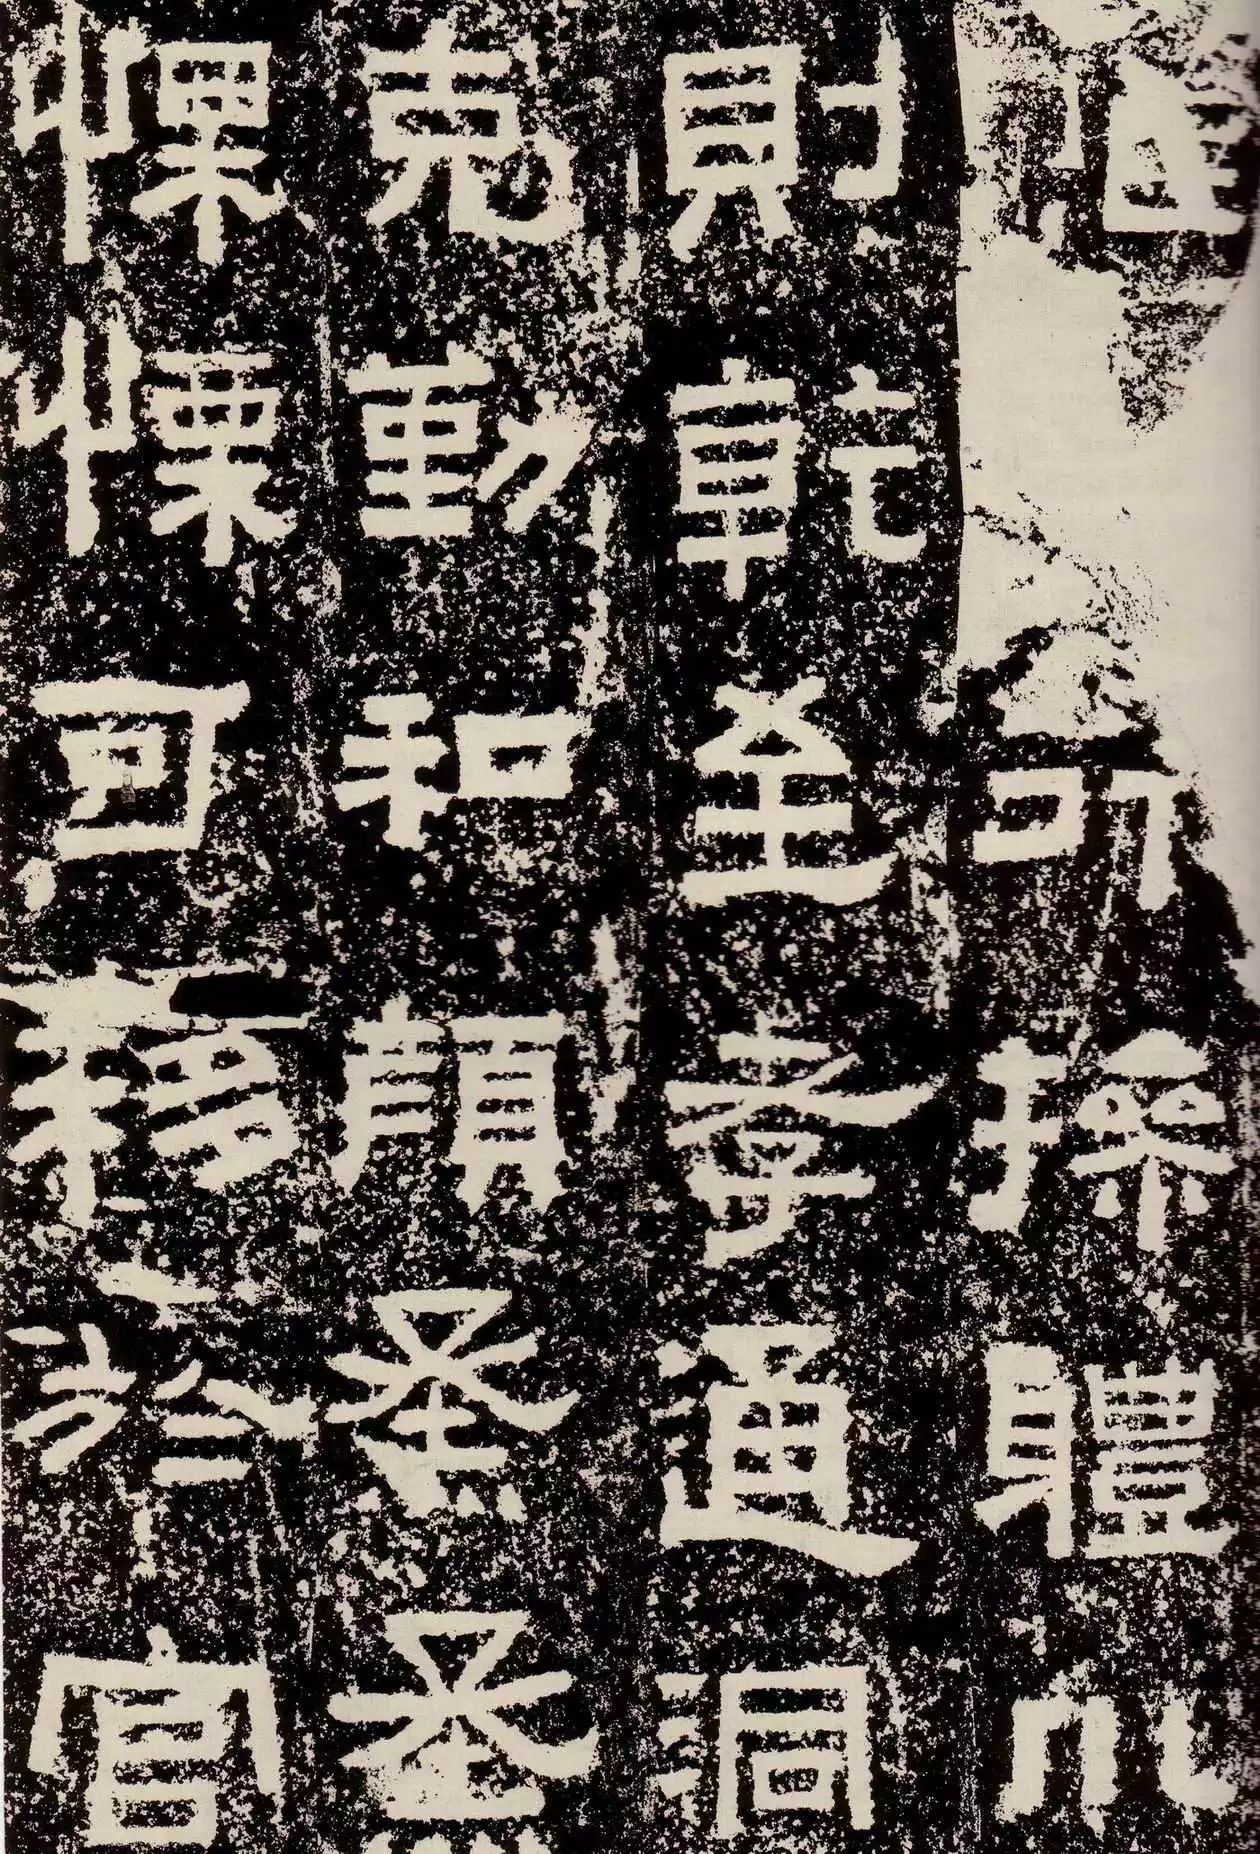 命操體川
則乾至孝通洞
克勤和顏烝烝
慄慄可移於官